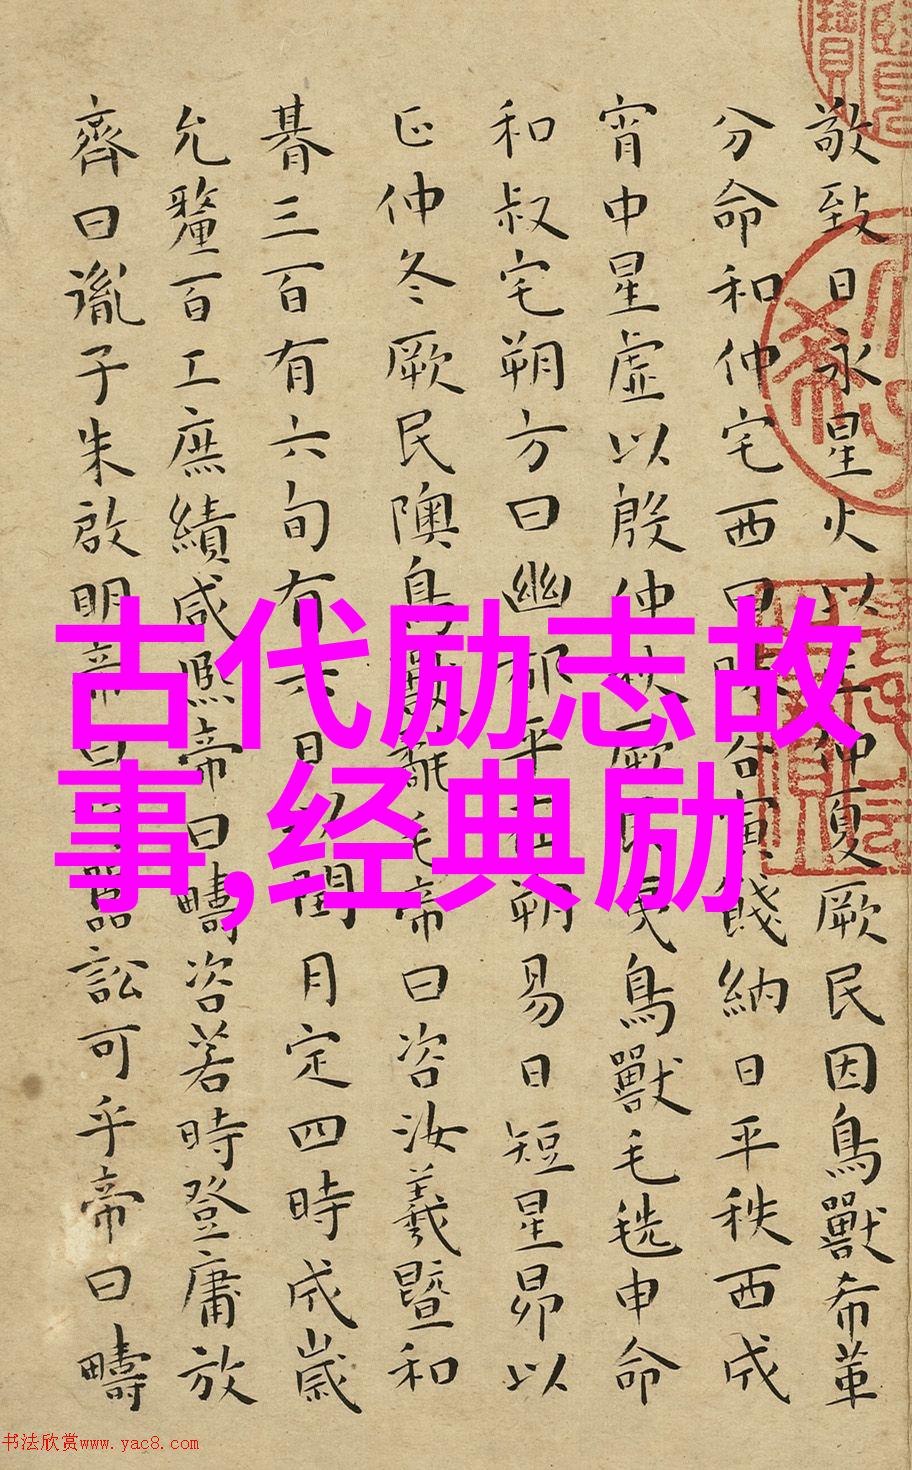 敬致日永星火以正仲夏厥民因鳥獸希革
分命和仲宅西曰昧谷寅餞納日平秩西成
宵中星虛以殷仲秋厥民夷鳥獸毛毨申命
和叔宅朔方曰幽都平在朔易日短星昴以
正仲冬厥民隩鳥獸氄毛帝曰咨汝羲暨和
朞三百有六旬有六日以閏月定四時成歲
允釐百工庶績咸熙帝曰疇咨若時登庸放
齊曰胤子朱啟明帝曰嚚訟可乎帝曰疇
古代励志故
事,经典励
书法欣赏www.yac8.com